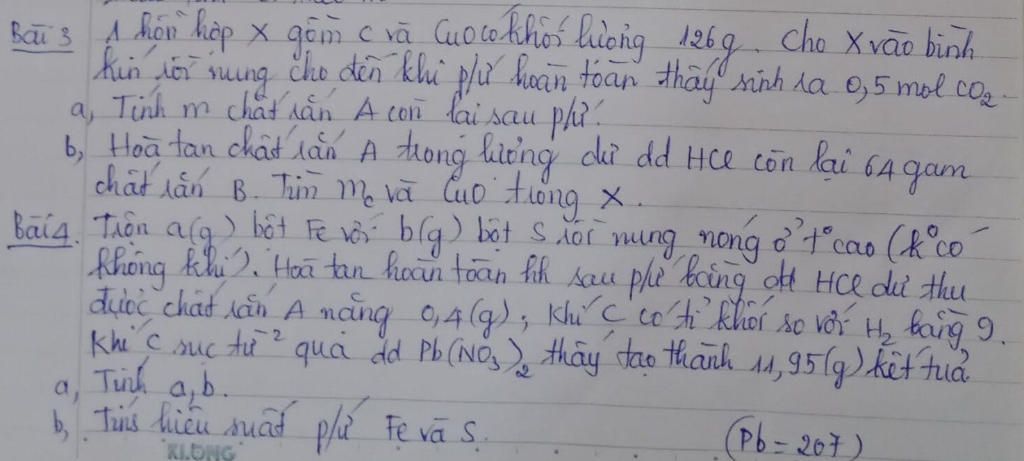 Bài 3 1 hỗn hợp X gồm C và CuO có khối lượng 126g. Cho X vào bình
kín rồi nung cho đến khi p/ứ hoàn toàn thấy sinh ra 0,5 mol CO2.
a, Tính m chất rắn A còn lại sau p/ứ.
b, Hoà tan chất rắn A trong lượng dư dd HCl còn lại 64 gam
chất rắn B. Tìm mc và CuO trong X.
Bài 4. Trộn a(g) bột Fe với b(g) bột S rồi nung nóng ở t° cao (k° có
không khí). Hoà tan hoàn toàn hh sau p/ứ bằng dd HCl dư thu
được chất rắn A nặng 0,4(g), khí C có tỉ khối so với H2 bằng 9.
Khí C sục từ ² qua dd Pb(NO3)2 thấy tạo thành 11,95(g) kết tuả
a, Tính a,b.
b, Tính hiêụ suất p/ứ Fe và S. (Pb = 207)
KLONG